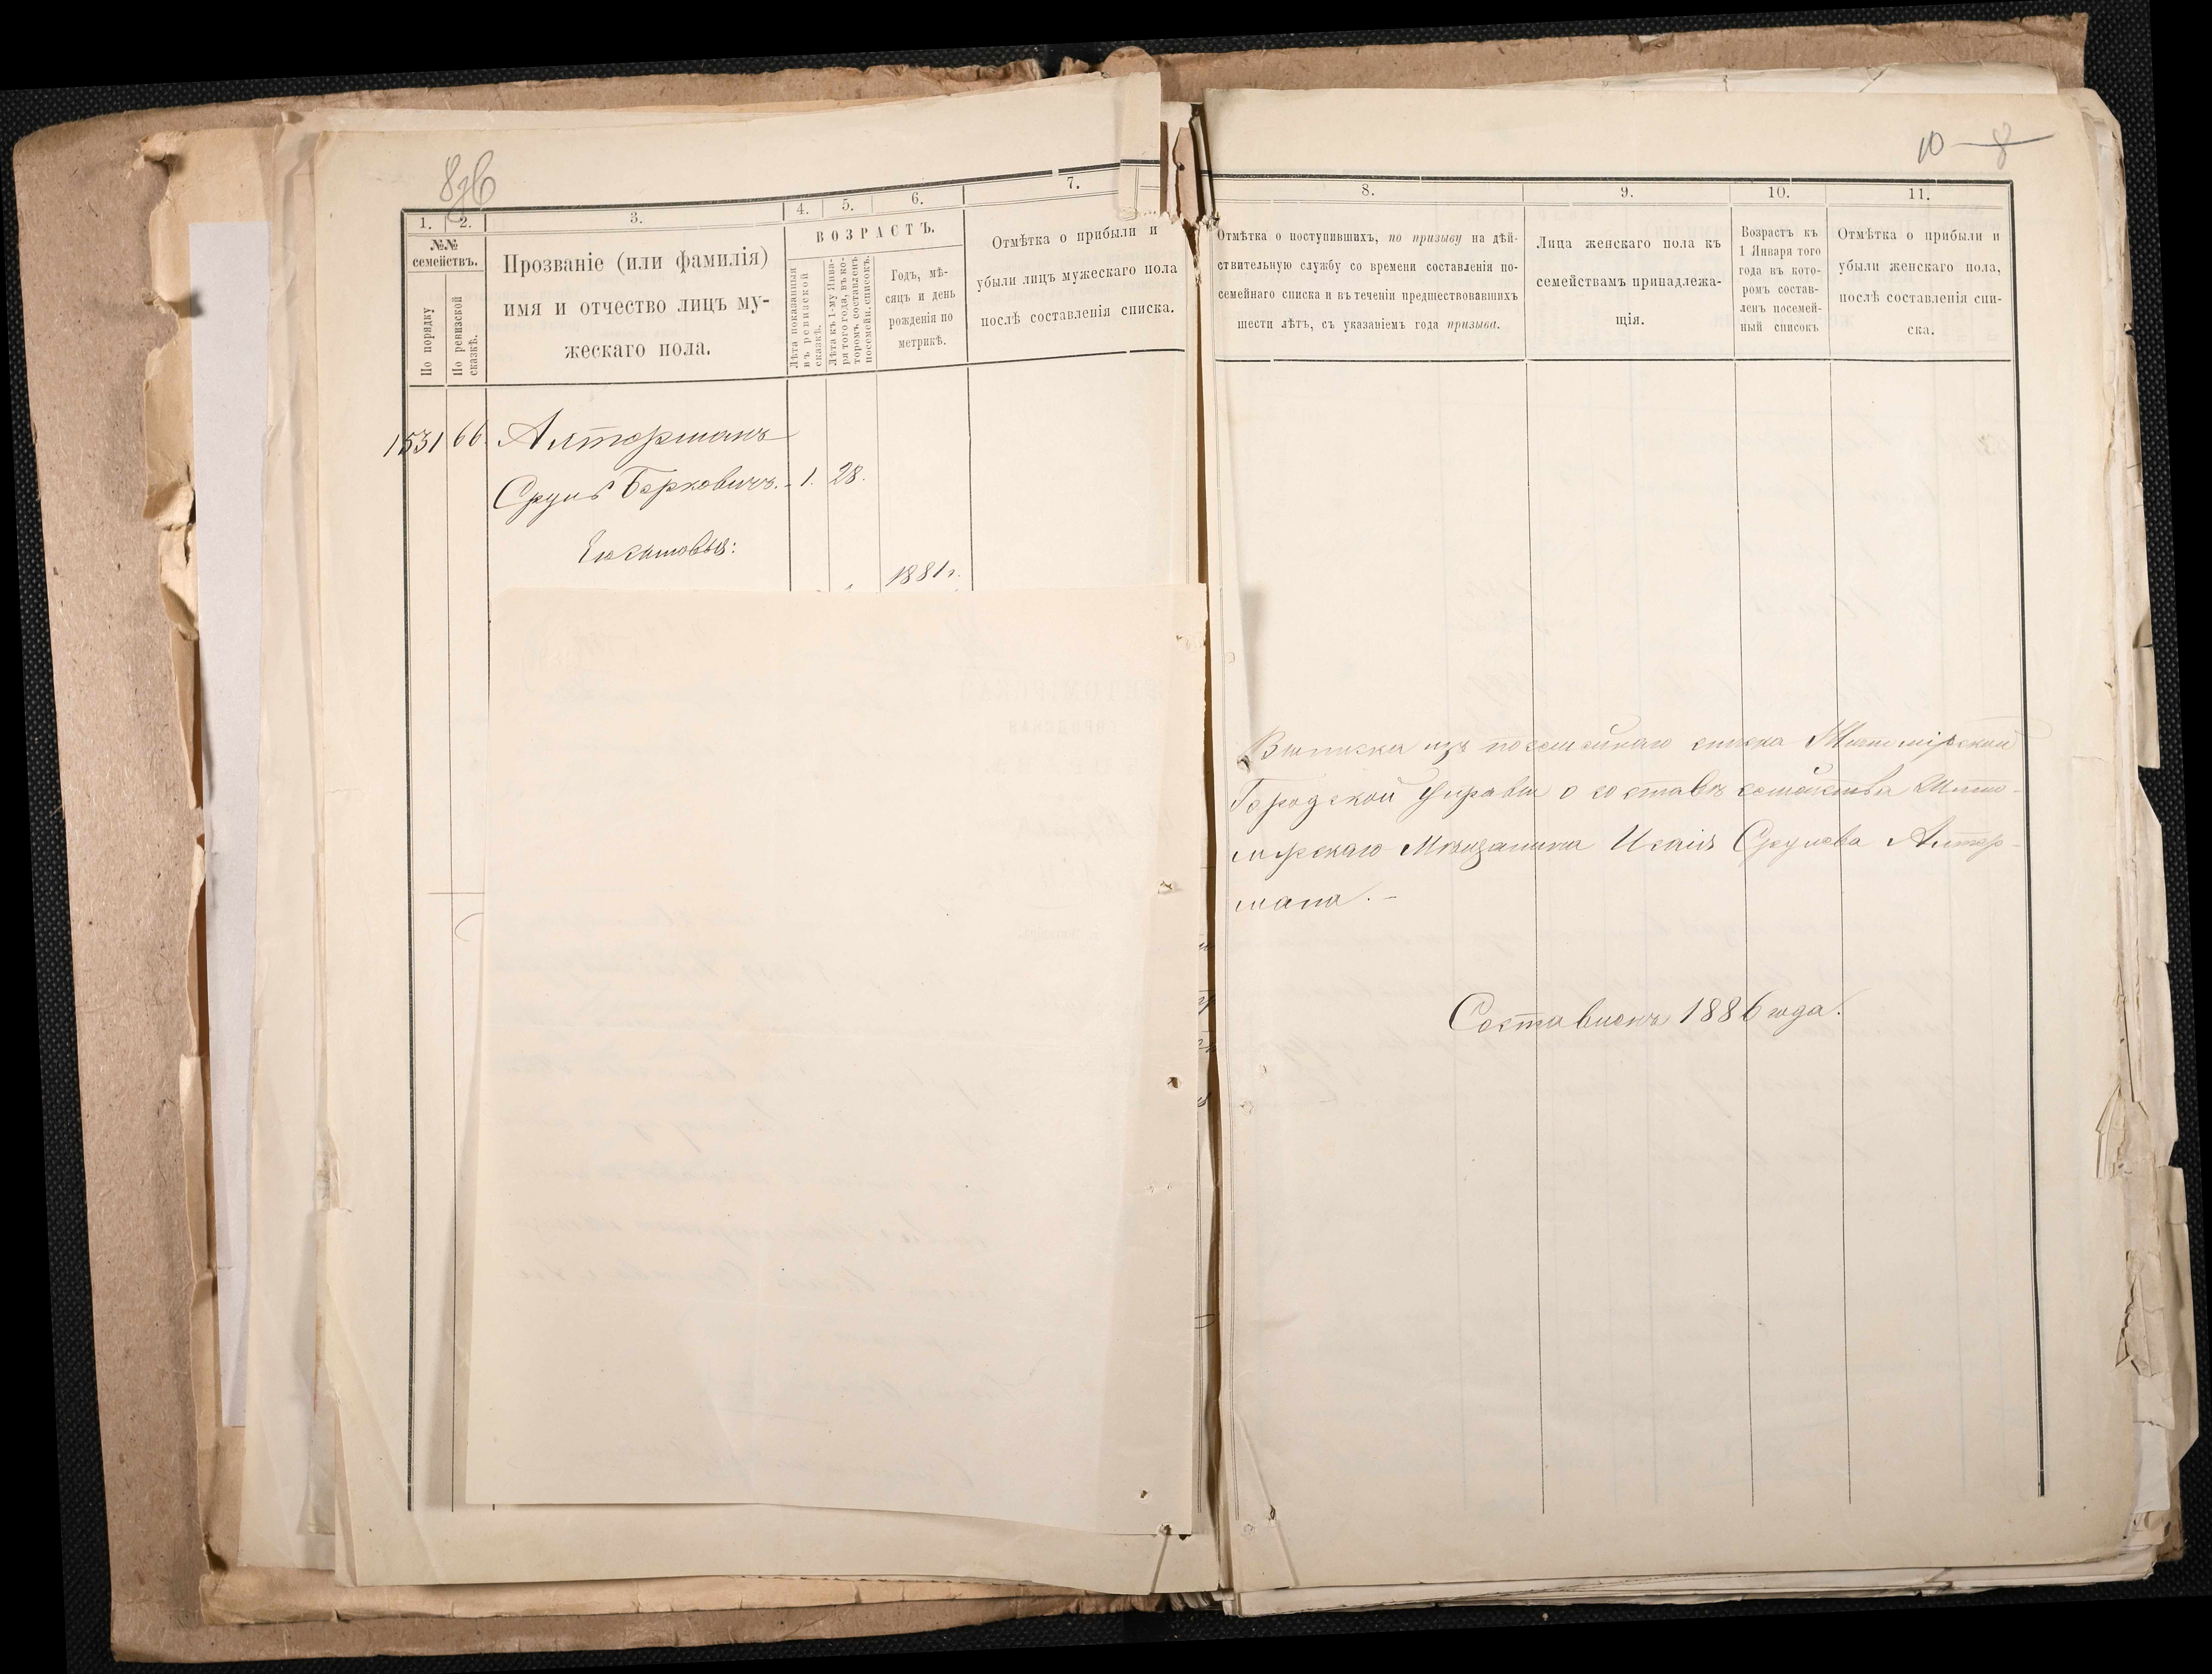 8 об
1.
2.
3.
4.
5.
6.
7.
№№
семействъ.
По порядку
По ревизской
сказкѣ.
Прозваніе (или фамилія)
имя и отчество лицъ му-
жескаго пола.
ВОЗРАСТЪ.
Лѣта показанныя
въ ревизской
сказкѣ.
Лѣта къ 1-му Янва-
ря того года, въ ко-
торомъ составленъ
посемейн. списокъ.
Годъ, мѣ-
сяцъ и день
рожденія по
метрикѣ.
Отмѣтка о прибыли и
убыли лицъ мужескаго пола
послѣ составленія списка.
1531 66 Алтерманъ
Сруль Берковичъ. 1. 28.
1881 г.
10 8
8.
9.
10.
11.
Отмѣтка о поступившихъ, по призыву на дѣй-
ствительную службу со времени составленія по-
семейнаго списка и въ теченіи предшествовавшихъ
шести лѣтъ, съ указаніемъ года призыва.
Лица женскаго пола къ
семействамъ принадлежа-
щія.
Возрастъ къ
1 Января того
года въ кото-
ромъ состав-
ленъ посемей-
ный списокъ
Отмѣтка о прибыли и
убыли женскаго пола,
послѣ составленія спи-
ска.
Выписка изъ посемейнаго списка Житомірской
Городской Управы о составѣ семейства Жито-
мірскаго Мѣщанина Исаія Срулева Алтер-
мана. –
Составленъ 1886 года.